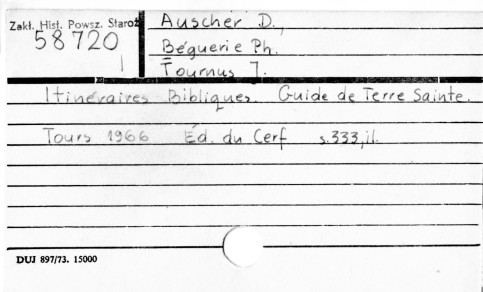 Zakł. Hist. Powsz. Staroż
58720
Auscher D.,
Béguerie Ph.
Tournus J.
Itinéraires Bibliques. Guide de Terre Sainte.
Tours 1966 Éd. du Cerf s.333, il.
DUJ 897/73. 15000